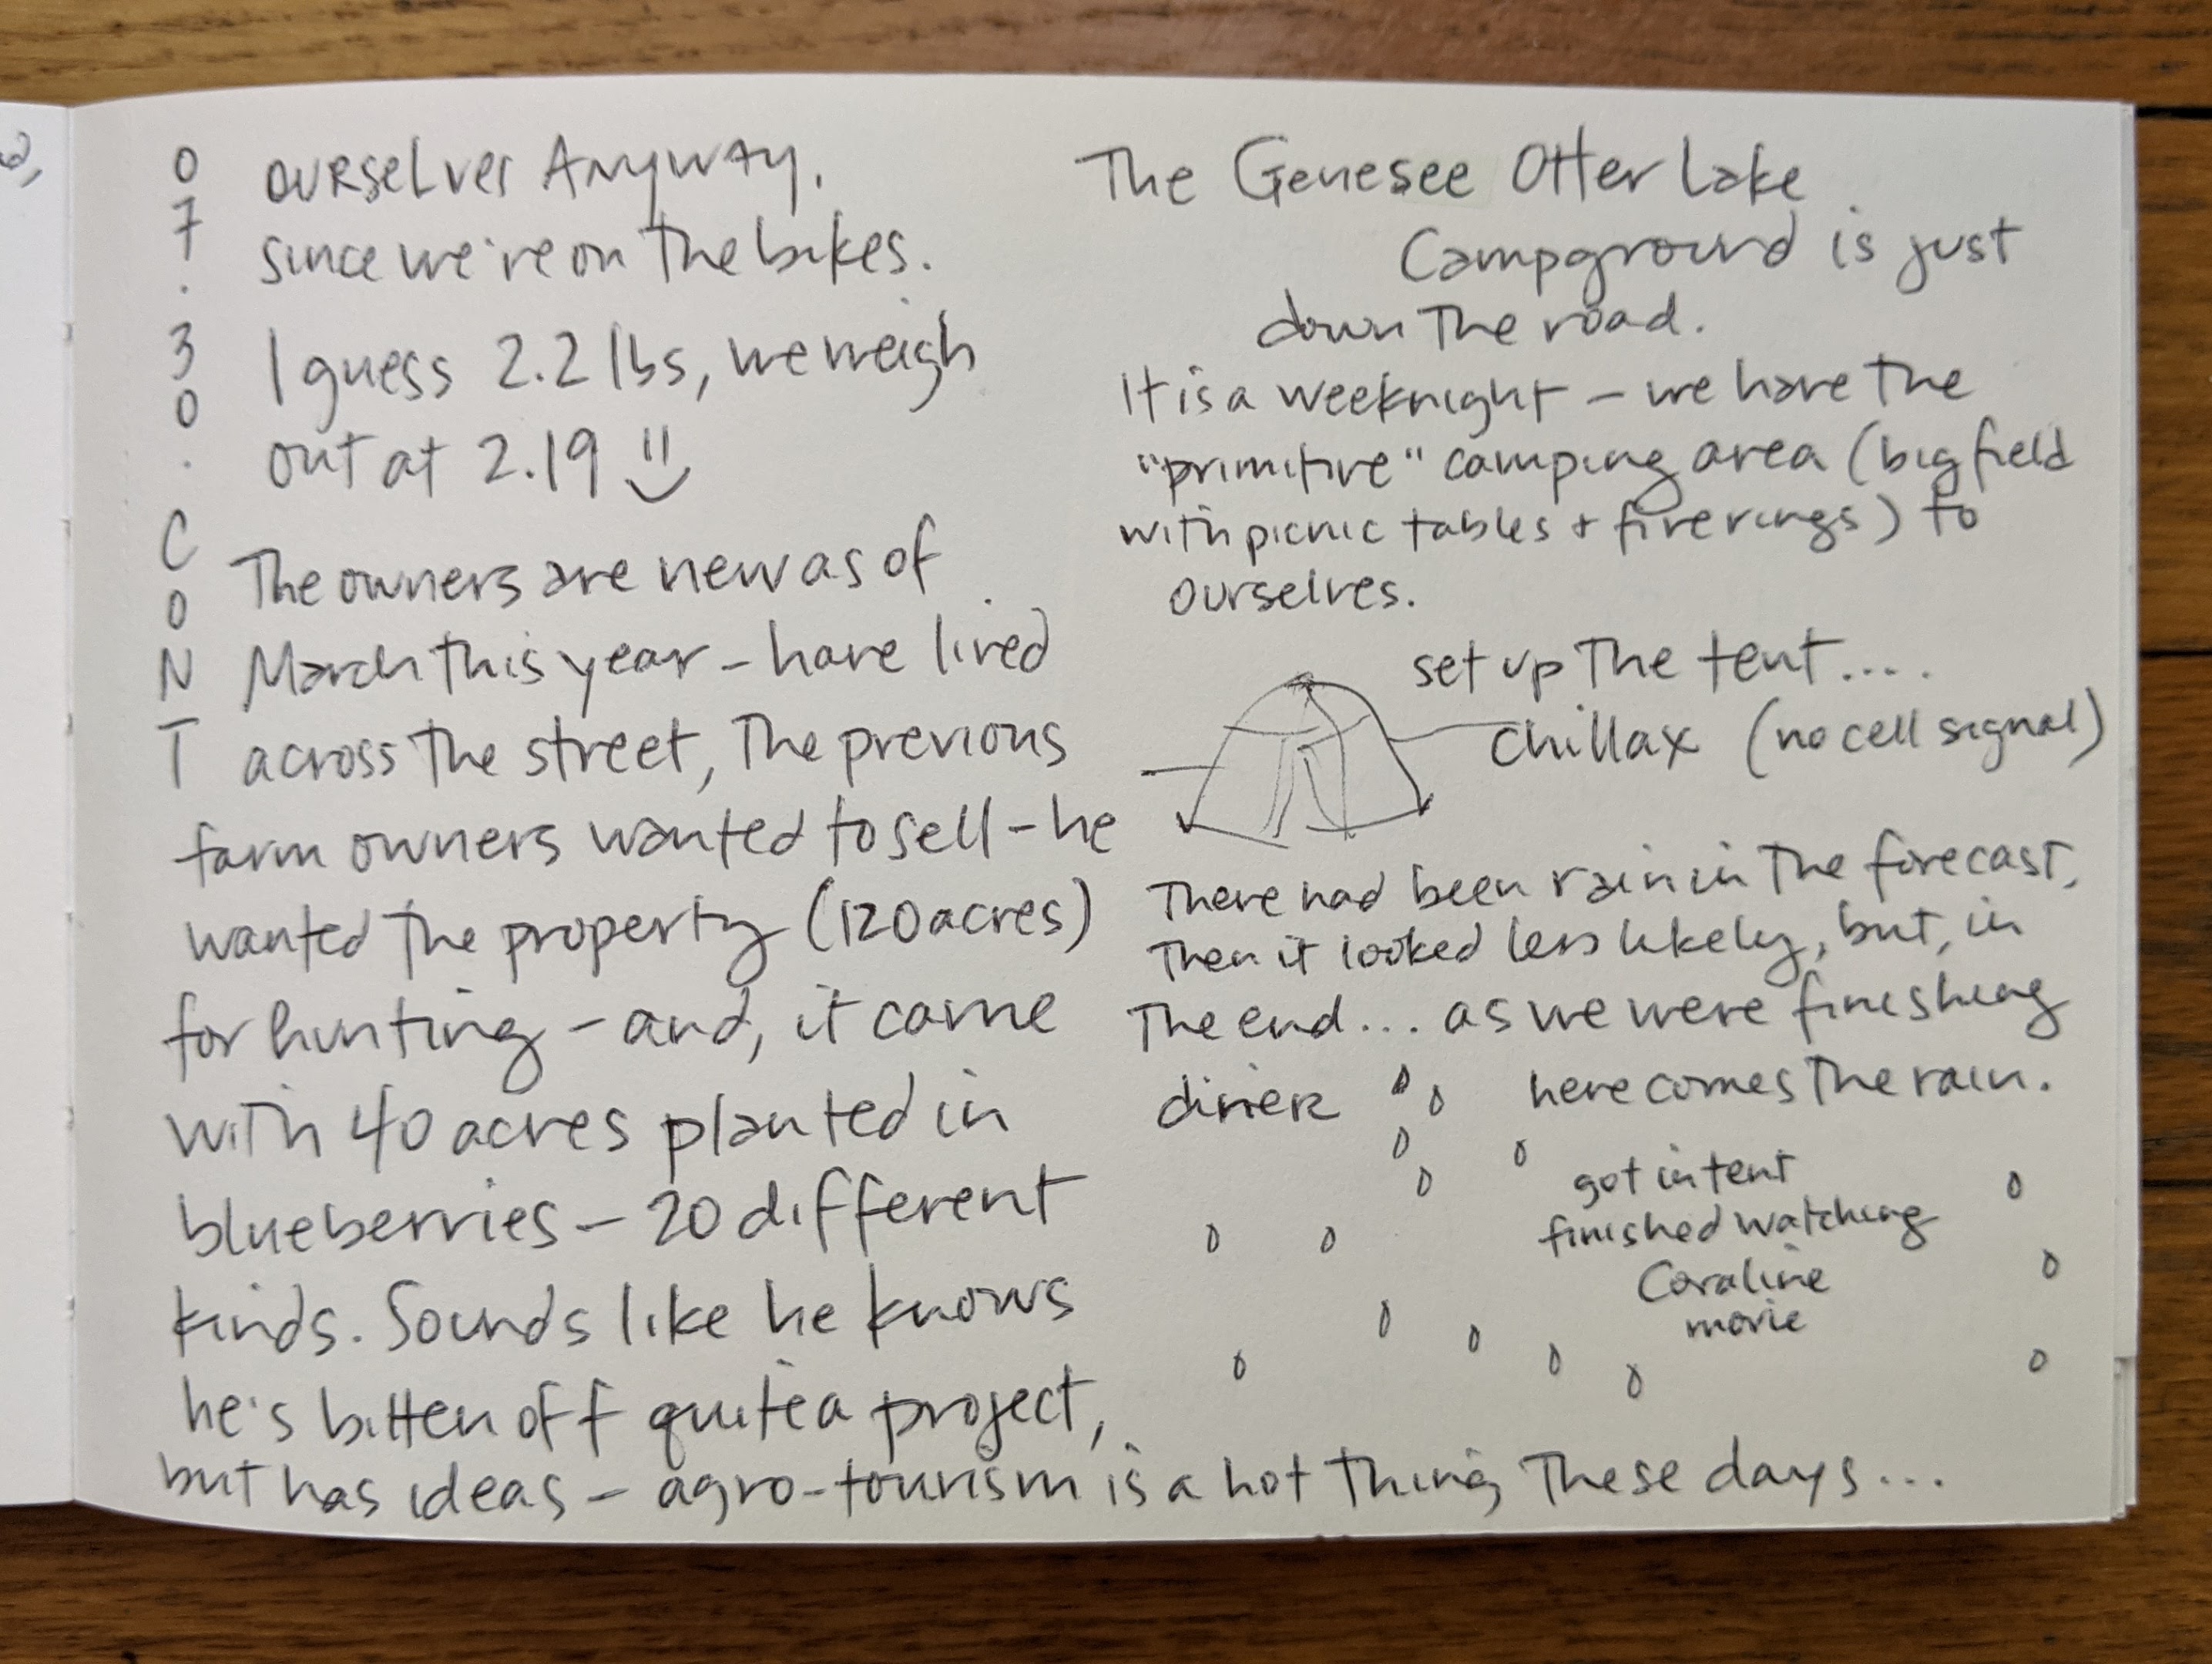 07.30.CONT
ourselves Anyway.
since we're on the bikes.
I guess 2.2 lbs, we weigh
out at 2.19
The owners are new as of
March this year - have lived
across the street, The previous
farm owners wanted to sell - he
wanted the property (120 acres)
for hunting - and, it came
with 40 acres planted in
blueberries - 20 different
kinds. Sounds like he knows
he's bitten off quite a project,
but has ideas - agro-tourism is a hot thing these days...
The Genesee Otter Lake
Campground is just
down the road.
It is a weeknight - we have the
"primitive" camping area (big field
with picnic tables + fire rings) to
ourselves.
set up the tent....
chillax (no cell signal)
There had been rain in the forecast,
Then it looked less likely, but, in
The end... as we were finishing
diner here comes the rain.
got in tent
finished watching
Coraline
movie